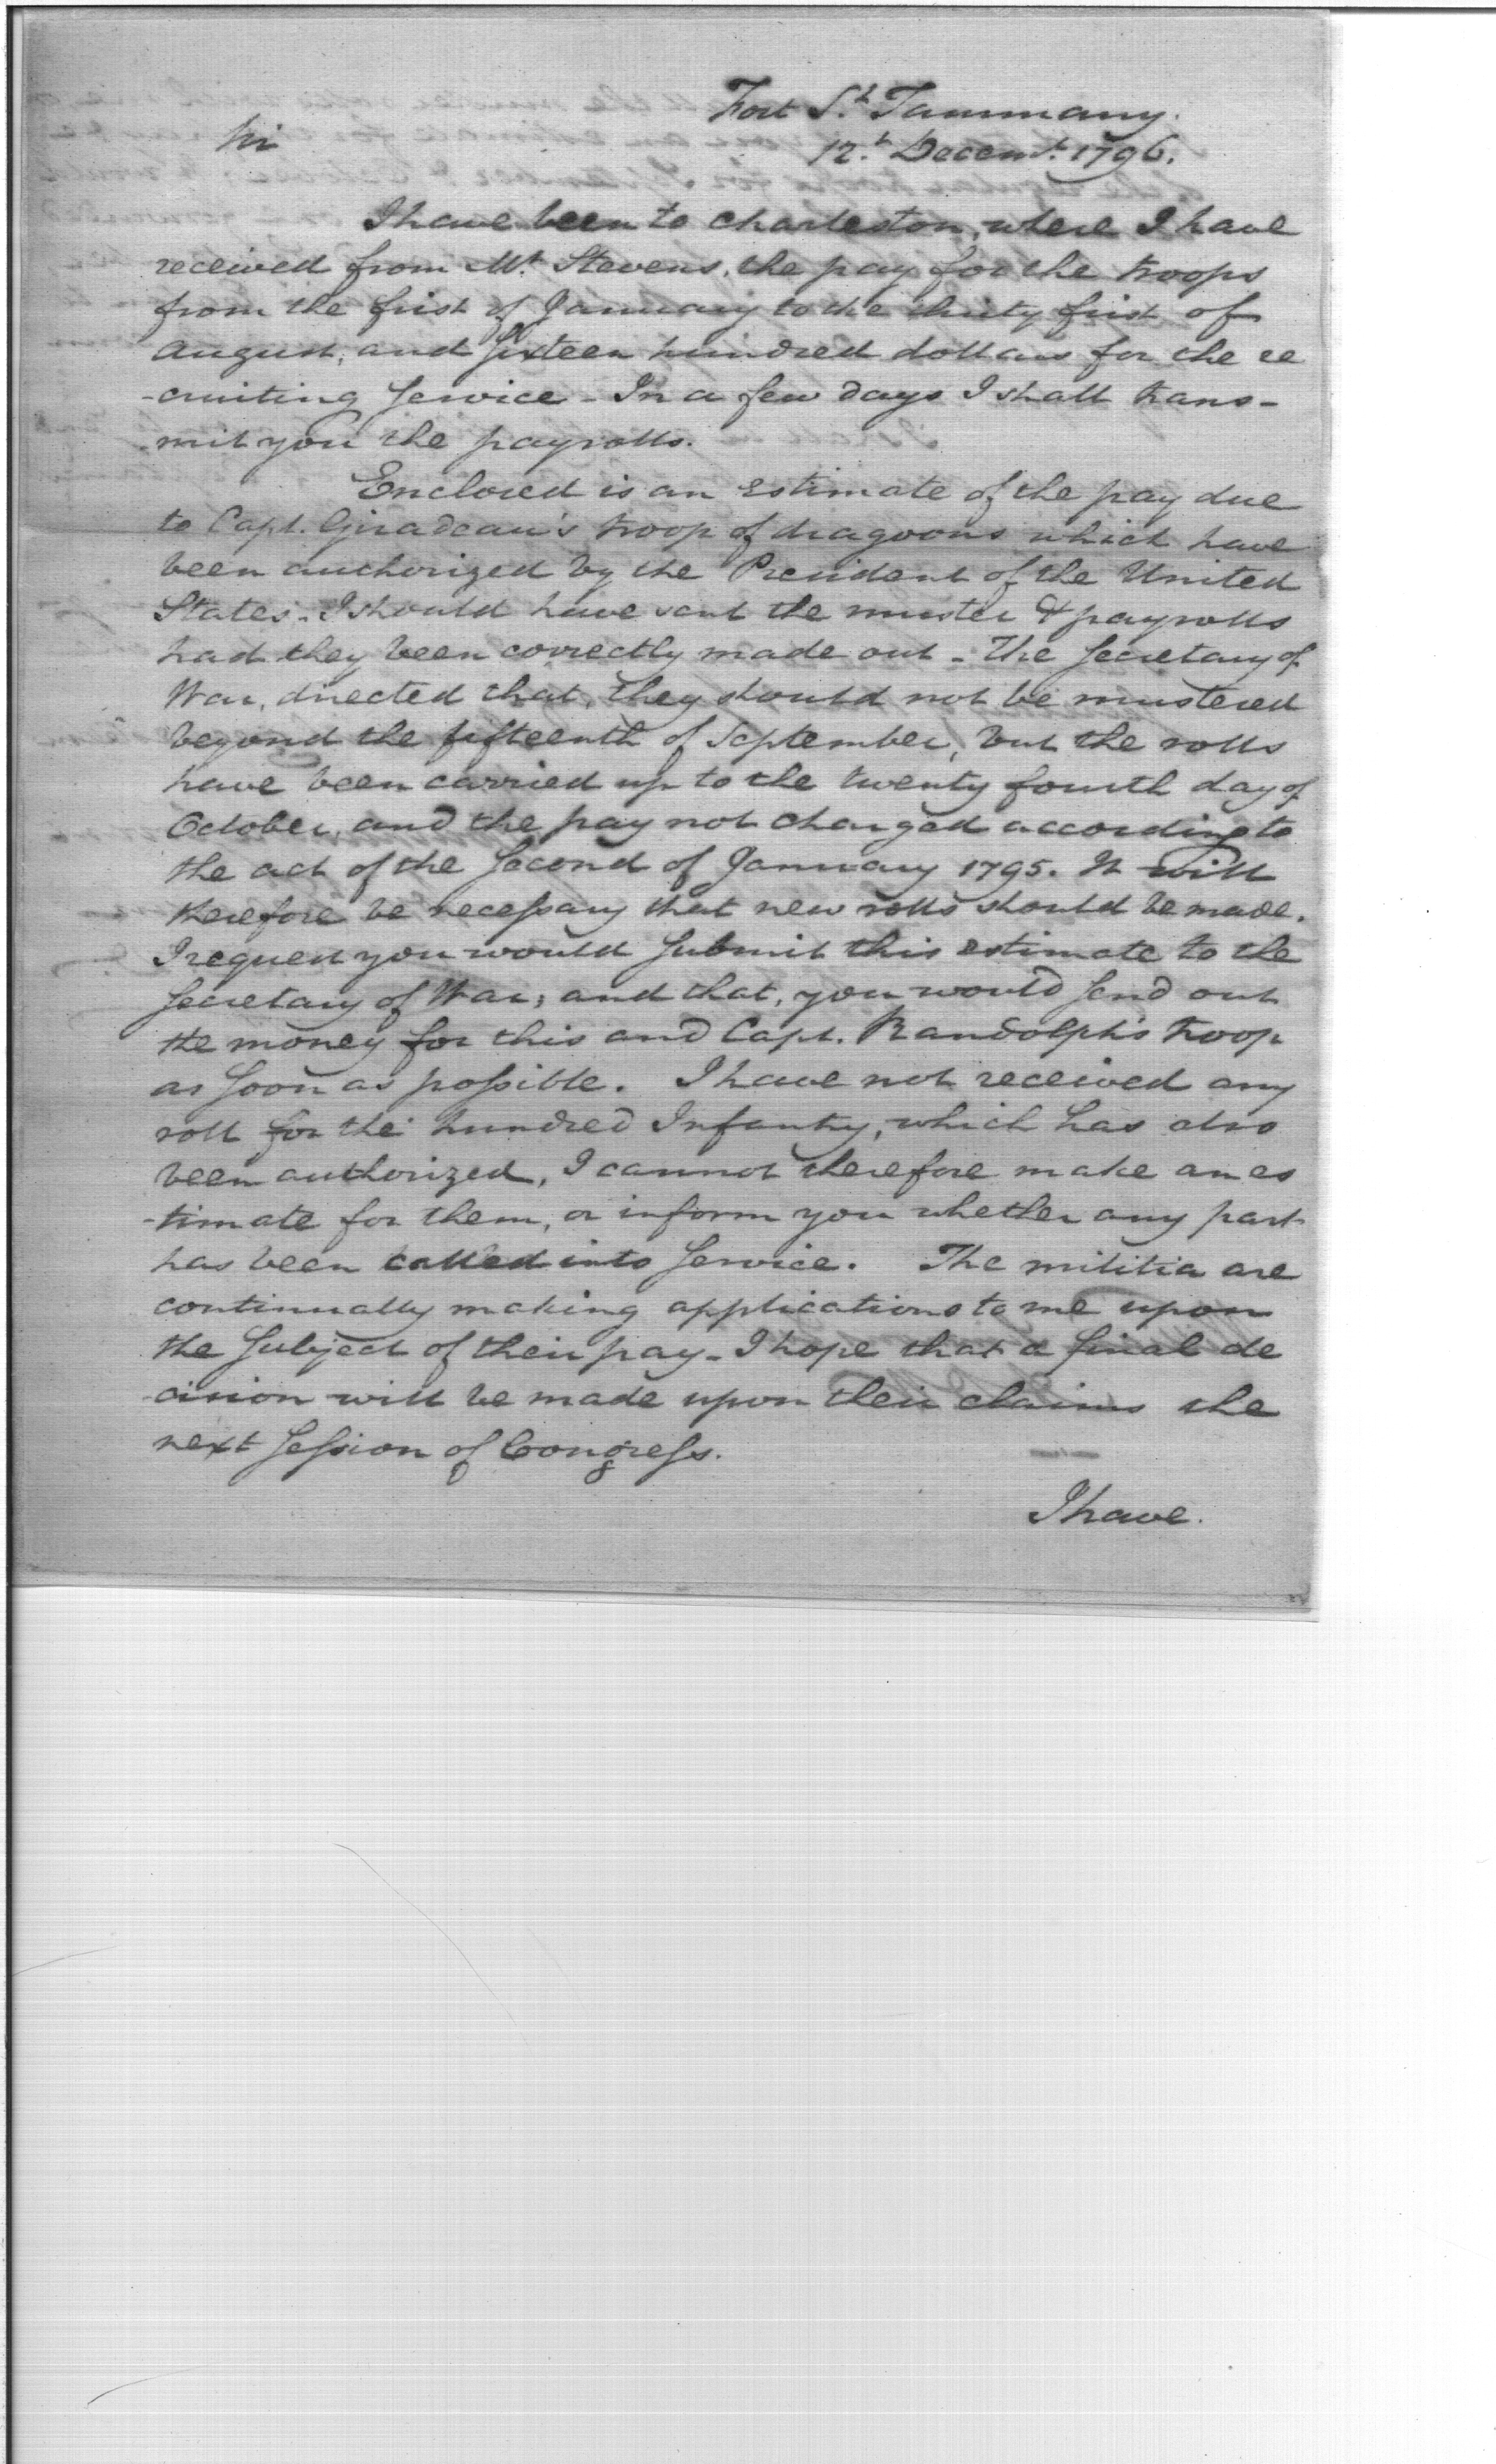 Fort St. Tammany.
Sir
12.th Decemr. 1796.
I have been to Charleston, where I have
received from Mr. Stevens, the pay for the troops
from the first of January to the thirty first of
August, and sixteen hundred dollars for the re
-cruiting service - In a few days I shall trans-
-mit you the payrolls.
Enclosed is an estimate of the pay due
to Capt. Giradeau's troop of dragoons which have
been authorized by the President of the United
States. I should have sent the muster & payrolls
had they been correctly made out - The Secretary of
War, directed that, they should not be mustered
beyond the fifteenth of September, but the rolls
have been carried up to the twenty fourth day of
October, and the pay not charged according to
the act of the second of January 1795. It will
therefore be necessary that new rolls should be made.
I request you would submit this estimate to the
Secretary of War; and that, you would send out
the money for this and Capt. Randolph's troop
as soon as possible. I have not received any
roll for the hundred Infantry, which has also
been authorized, I cannot therefore make an es
-timate for them, or inform you whether any part
has been called into service. The militia are
continually making applications to me upon
the subject of their pay - I hope that a final de
-cision will be made upon their claims the
next session of Congress.
I have.